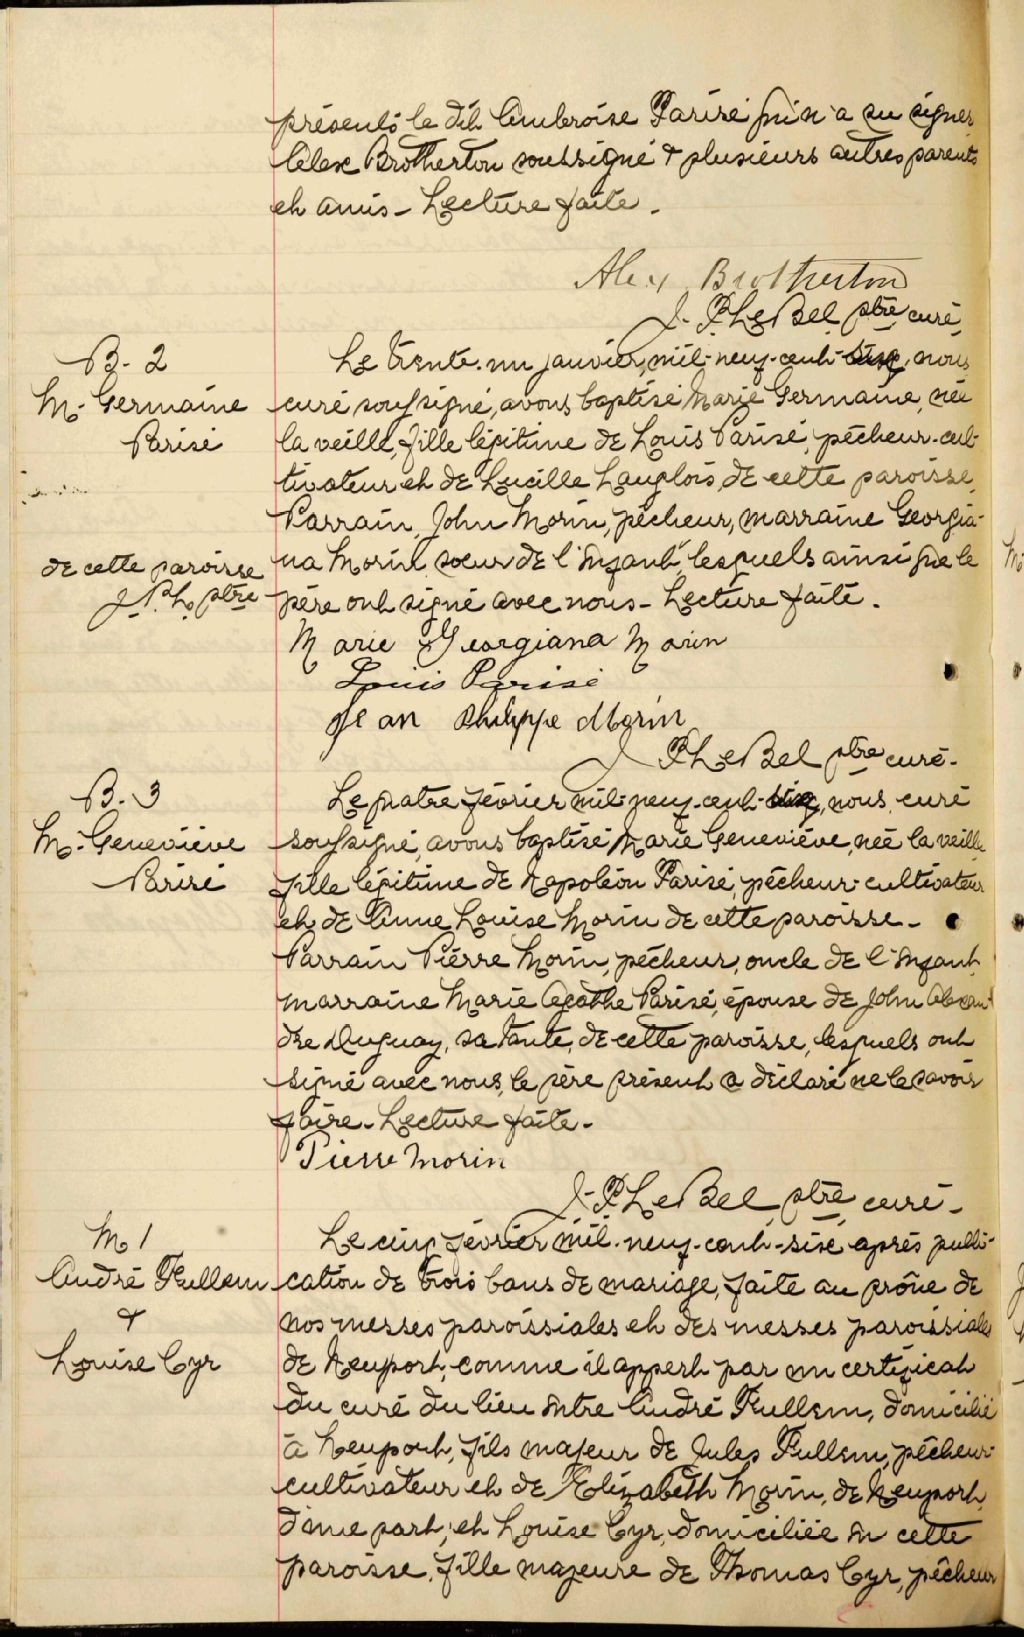 présents le dit Ambroise Parisé qui n'a su signer,
Alex Brotherton soussigné & plusieurs autres parents
et amis - Lecture faite -
Alex Brotherton
J. P. LeBel ptre curé
B. 2
M. Germaine
Parisé
Le trente-un janvier, mil-neuf-cent-six, nous
curé soussigné, avons baptisé Marie Germaine, née
la veille, fille légitime de Louis Parisé, pêcheur-cul-
tivateur et de Lucille Langlois, de cette paroisse,
Parrain, John Morin, pêcheur, marraine Georgia-
na Morin sœur de l'enfant, lesquels ainsi que le
père ont signé avec nous - Lecture faite.
de cette paroisse
J. P. L. ptre
Marie Georgiana Morin
Louis Parisé
Jean Philippe Morin
J. P. LeBel ptre curé -
B. 3
M. Geneviève
Parisé
Le quatre février mil-neuf-cent-six, nous, curé
soussigné, avons baptisé Marie Geneviève, née la veille
fille légitime de Napoléon Parisé, pêcheur-cultivateur
et de Anne Louise Morin de cette paroisse -
Parrain Pierre Morin, pêcheur, oncle de l'enfant,
marraine Marie Agathe Parisé, épouse de John Alexan-
dre Duguay, sa tante, de cette paroisse, lesquels ont
signé avec nous, le père présent a déclaré ne le savoir
faire - Lecture faite -
Pierre Morin
J. P. LeBel, ptre, curé -
M 1
André Fullem
&
Louise Cyr
Le cinq février mil-neuf-cent-six après publi-
cation de trois bans de mariage, faite au prône de
nos messes paroissiales et des messes paroissiales
de Newport, comme il appert par un certificat
du curé du lieu entre André Fullem, domicilié
à Newport, fils majeur de Jules Fullem, pêcheur-
cultivateur et de Elizabeth Morin, de Newport,
d'une part, et Louise Cyr, domiciliée en cette
paroisse, fille majeure de Thomas Cyr, pêcheur